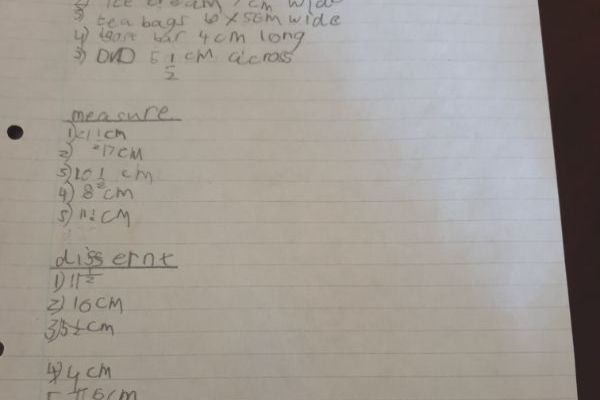 ice cream 7 cm wide
3) tea bags 6 x 5cm wide
4) bar 4 cm long
5) DVD 5 1/2 cm across
measure
1) cm
2) 17 cm
3) 10 1/2 cm
4) 8 cm
5) 11 1/2 cm
dissernt
1) 11 1/2
2) 16 cm
3) 5 1/2 cm
4) 4 cm
6cm